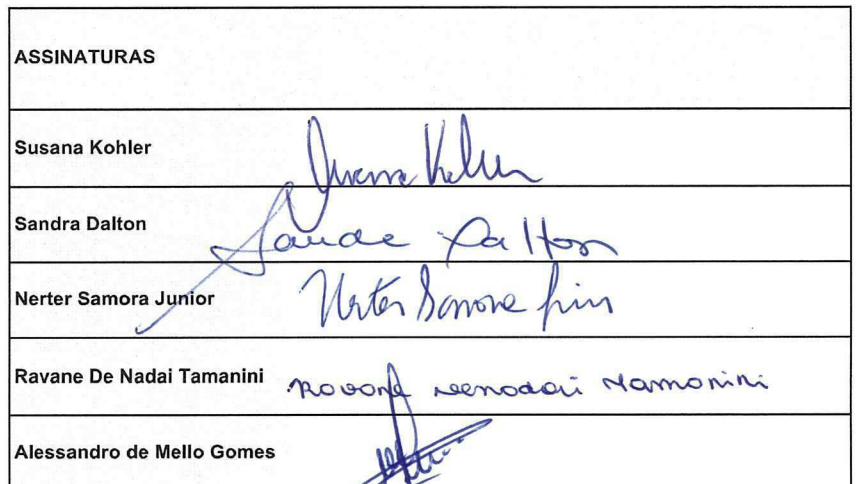 ASSINATURAS
Susana Kohler
Susana Kohler
Sandra Dalton
Sandra Dalton
Nerter Samora Junior
Nerter Samora Junior
Ravane De Nadai Tamanini
Ravane Denadai Tamanini
Alessandro de Mello Gomes